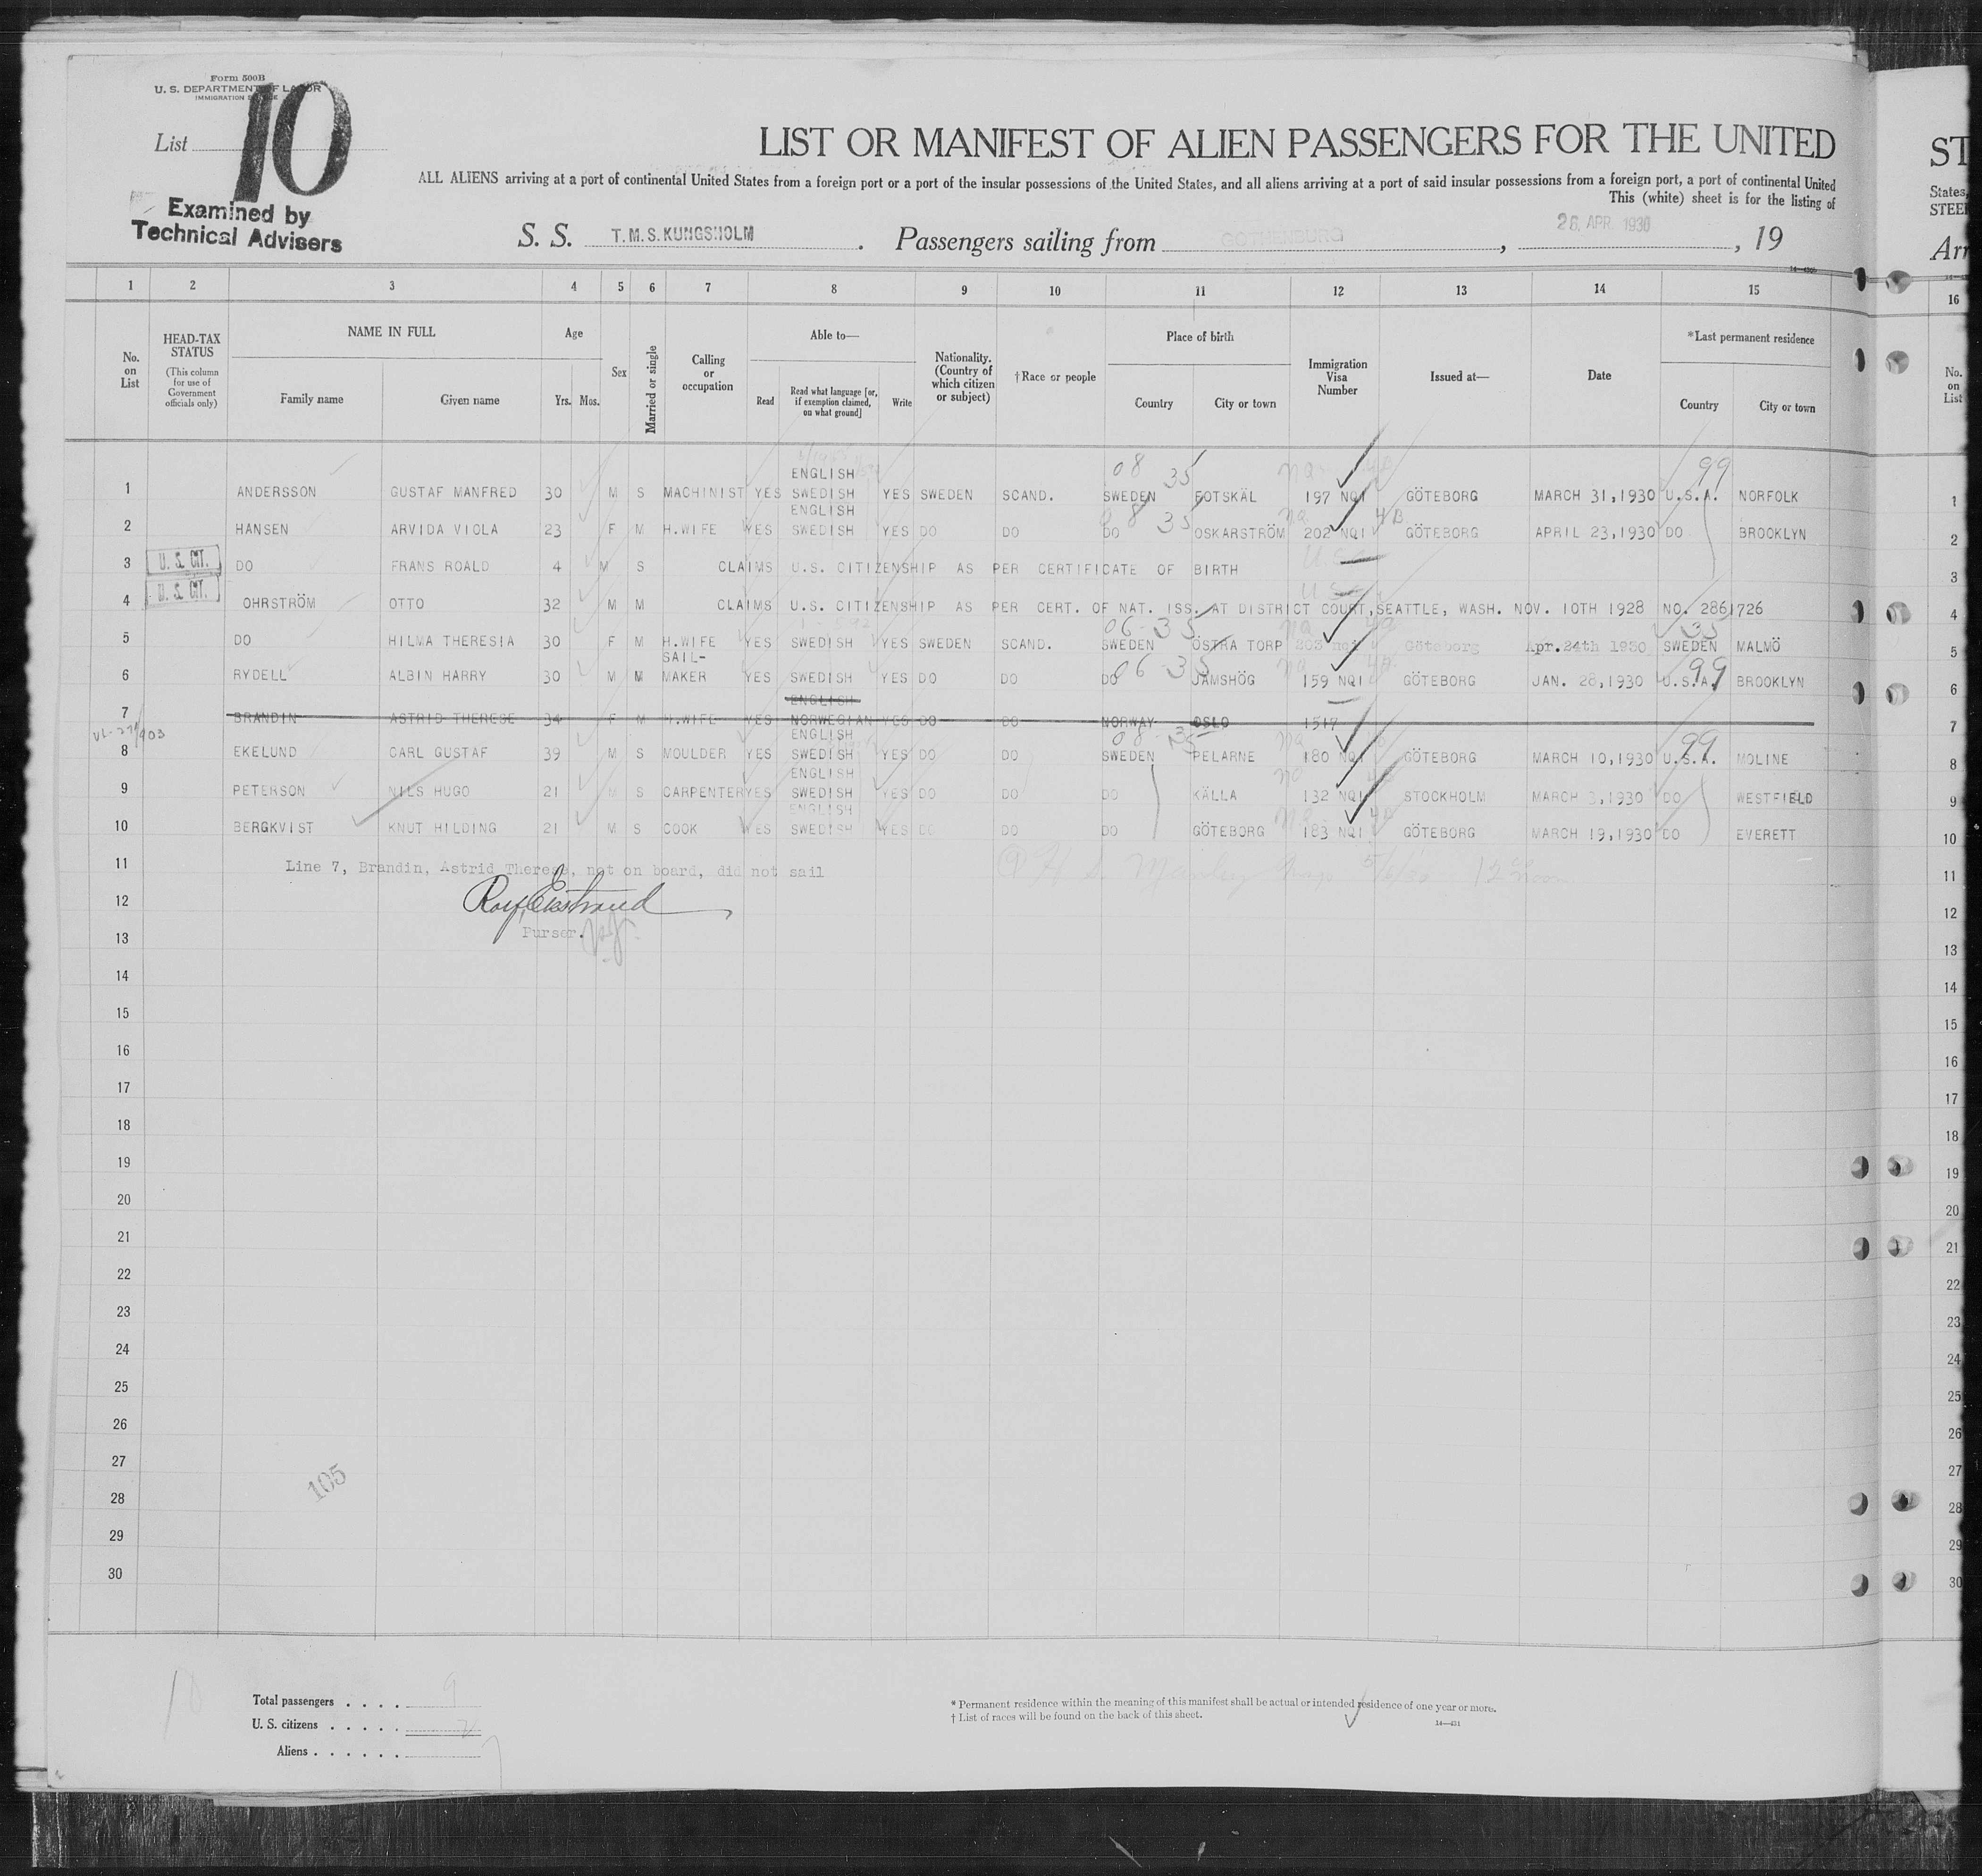 Form 500B
U. S. DEPARTMENT OF LABOR
IMMIGRATION SERVICE
List 10
Examined by
Technical Advisers
LIST OR MANIFEST OF ALIEN PASSENGERS FOR THE UNITED
ALL ALIENS arriving at a port of continental United States from a foreign port or a port of the insular possessions of the United States, and all aliens arriving at a port of said insular possessions from a foreign port, a port of continental United
This (white) sheet is for the listing of
S. S. T.M.S. KUNGSHOLM. Passengers sailing from GOTHENBURG, 26. APR. 1930, 19
ST
States,
STEE
Arr
1 2 3 4 5 6 7 8 9 10 11 12 13 14 15 16
No. on List
HEAD-TAX STATUS
(This column for use of Government officials only)
NAME IN FULL
Family name Given name
Age
Yrs. Mos.
Sex
Married or single
Calling or occupation
Able to—
Read
Read what language [or, if exemption claimed, on what ground]
Write
Nationality. (Country of which citizen or subject)
†Race or people
Place of birth
Country City or town
Immigration Visa Number
Issued at—
Date
*Last permanent residence
Country City or town
No. on List
ENGLISH 08 35 na 99
1 ANDERSSON GUSTAF MANFRED 30 M S MACHINIST YES SWEDISH YES SWEDEN SCAND. SWEDEN FOTSKÄL 197 NQI GÖTEBORG MARCH 31,1930 U.S.A. NORFOLK 1
ENGLISH 08 35 na 4B
2 HANSEN ARVIDA VIOLA 23 F M H.WIFE YES SWEDISH YES DO DO DO OSKARSTRÖM 202 NQI GÖTEBORG APRIL 23,1930 DO BROOKLYN 2
3 U. S. CIT. DO FRANS ROALD 4 M S CLAIMS U.S. CITIZENSHIP AS PER CERTIFICATE OF BIRTH 3
4 U. S. CIT. OHRSTRÖM OTTO 32 M M CLAIMS U.S. CITIZENSHIP AS PER CERT. OF NAT. ISS. AT DISTRICT COURT, SEATTLE, WASH. NOV. 10TH 1928 NO. 2861726 4
06 35 na 35
5 DO HILMA THERESIA 30 F M H.WIFE YES SWEDISH YES SWEDEN SCAND. SWEDEN ÖSTRA TORP 203 nqi Göteborg Apr.24th 1930 SWEDEN MALMÖ 5
SAIL- 06 35 na 99
6 RYDELL ALBIN HARRY 30 M M MAKER YES SWEDISH YES DO DO DO JÄMSHÖG 159 NQI GÖTEBORG JAN. 28,1930 U.S.A. BROOKLYN 6
ENGLISH
7 BRANDIN ASTRID THERESE 34 F M H.WIFE YES NORWEGIAN YES DO DO NORWAY OSLO 1517 7
ENGLISH 08 35 99
8 EKELUND CARL GUSTAF 39 M S MOULDER YES SWEDISH YES DO DO SWEDEN PELARNE 180 NQI GÖTEBORG MARCH 10,1930 U.S.A. MOLINE 8
ENGLISH na
9 PETERSON NILS HUGO 21 M S CARPENTER YES SWEDISH YES DO DO DO KÄLLA 132 NQI STOCKHOLM MARCH 3,1930 DO WESTFIELD 9
ENGLISH
10 BERGKVIST KNUT HILDING 21 M S COOK YES SWEDISH YES DO DO DO GÖTEBORG 183 NQI GÖTEBORG MARCH 19,1930 DO EVERETT 10
11 Line 7, Brandin, Astrid Therese, not on board, did not sail 11
12 12
13 Purser. 13
14 14
15 15
16 16
17 17
18 18
19 19
20 20
21 21
22 22
23 23
24 24
25 25
26 26
27 27
105
28 28
29 29
30 30
Total passengers . . . . 9
U. S. citizens . . . . . 2
Aliens . . . . . . 7
* Permanent residence within the meaning of this manifest shall be actual or intended residence of one year or more.
† List of races will be found on the back of this sheet.